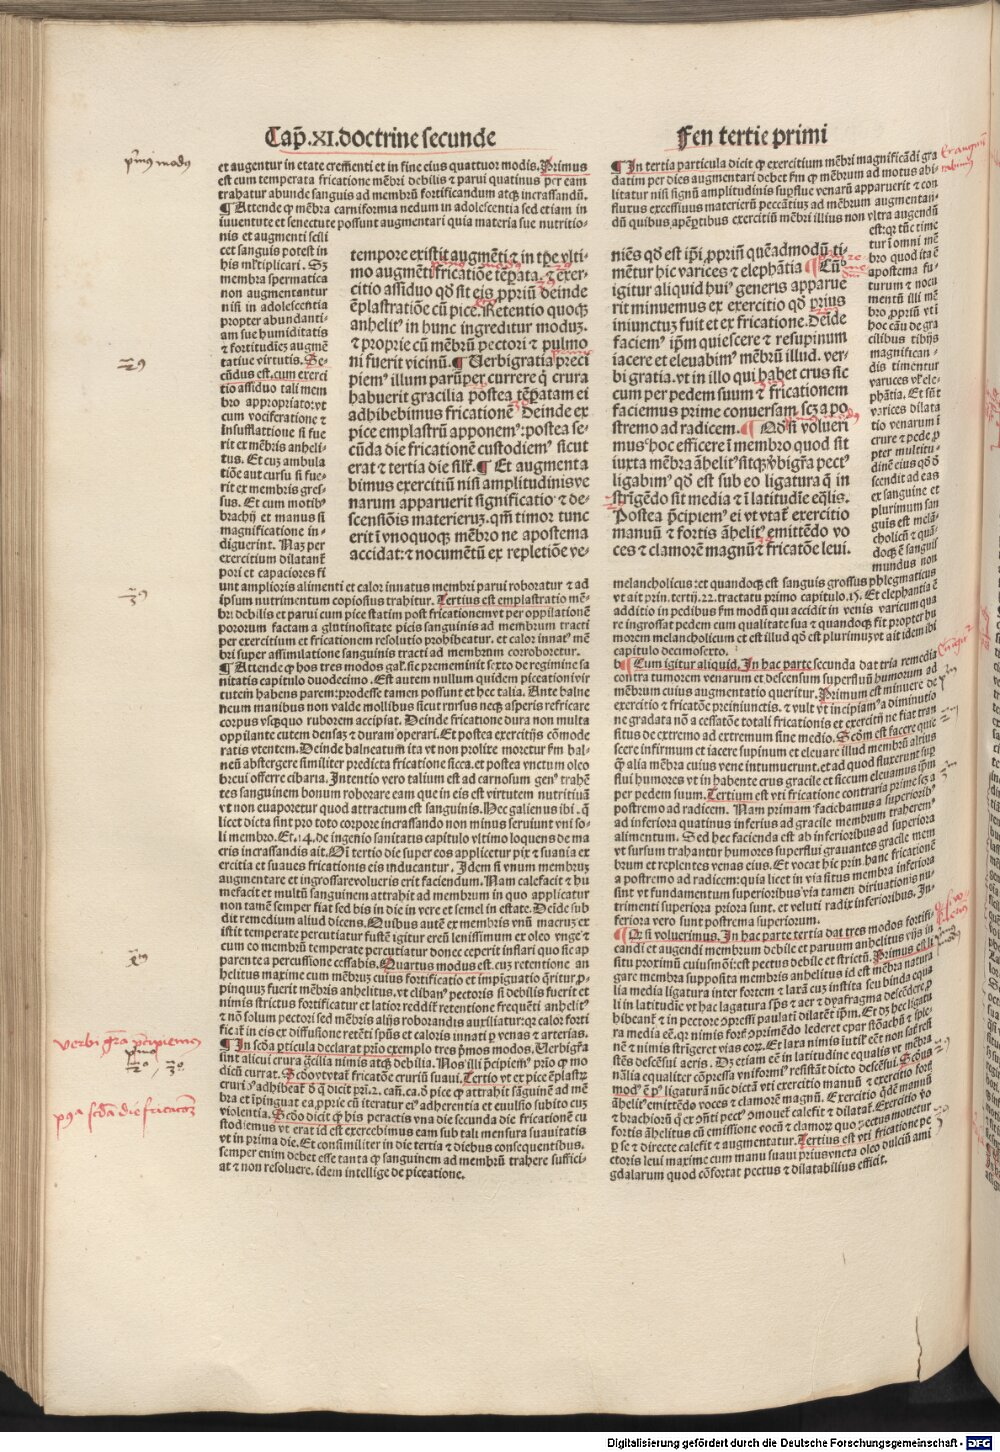 Cap̄.XI.doctrine secunde
Fen tertie primi
p̄mus modus
et augentur in etate crem̄enti et in fine eius quattuor modis. Primus
est cum temperata fricatione mēbri debilis ⁊ parui quatinus per eam
trahatur abunde sanguis ad membrū fortificandum atqꝫ incrassandū.
¶ Attende ꝙ mēbra carniformia nedum in adolescentia sed etiam in
iuuentute et senectute possunt augmentari quia materia sue nutritio-
nis et augmenti scili
cet sanguis potest in
his mltiplicari. Sꝫ
membra spermatica
non augmentantur
nisi in adolescentia
propter abundanti-
am sue humiditatis
⁊ fortitudieꝫ augmē
tatiue virtutis. Se-
cūdus est.cum exerci
tio assiduo tali mem
bro appropriato:vt
cum vociferatione ⁊
insufflatione si fue
rit ex mēbris anheli-
tus. Et cuꝫ ambula
tiōe aut cursu si fue-
rit ex membris gres-
sus. Et cum motibꝰ
brachij et manus si
magnificatione in-
diguerint. Naꝫ per
exercitium dilatant̄
pori et capaciores fi
tempore existit augmēti:⁊ in tpe vlti-
mo augmēti fricatiōe tēperata.⁊ exer-
citio assiduo qd̄ sit eis ꝓpriū deinde
ēplastratiōe cū pice. Retentio quoqꝫ
anhelitꝰ in hunc ingreditur moduꝫ.
⁊ proprie cū mēbrū pectori ⁊ pulmo
ni fuerit vicinū. ¶ Uerbigratia preci
piemꝰ illum parūper currere q̄ crura
habuerit gracilia postea tēperatam ei
adhibebimus fricationē Deinde ex
pice emplastrū apponemꝰ:postea se-
cūda die fricationē custodiemꝰ sicut
erat ⁊ tertia die silr̄. ¶ Et augmenta
bimus exercitiū nisi amplitudinis ve
narum apparuerit significatio ⁊ de-
scensiōis materieruꝫ.qm̄ timor tunc
erit ī vnoquoqꝫ mēbro ne apostema
accidat:⁊ nocumētū ex repletiōe ve-
unt amplioris alimenti et calor innatus membri parui roboratur ⁊ ad
ipsum nutrimentum copiosius trahitur. Tertius est emplastratio mē-
bri debilis et parui cum pice statim post fricationem vt per oppilationē
pororum factam a glutinositate picis sanguinis ad membrum tracti
per exercitium et fricationem resolutio prohibeatur. et calor innatꝰ mē
bri super assimilatione sanguinis tracti ad membrum corroboretur.
¶ Attende ꝙ hos tres modos gal̄.sic preme minit sexto de regimine sa
nitatis capitulo duodecimo. Est autem nullum quidem piceationi vir
tutem habens parem:prodesse tamen possunt et hec talia. Ante balne
neum manibus non valde mollibus sicut rursus necqꝫ asperis refricare
corpus vsqꝫquo ruborem accipiat. Deinde fricatione dura non multa
oppilante cutem densaꝫ ⁊ duram operari. Et postea exercitijs cōmode
ratis vtentem. Deinde balneatum ita vt non prolixe moretur īm bal-
neū abstergere similiter predicta fricatione sicca. et postea vnctum oleo
breui offerre cibaria. Intentio vero talium est ad carnosum genꝰ trahē
tes sanguinem bonum roborare eam que in eis est virtutem nutritiuā
vt non euaporetur quod attractum est sanguinis. Hec galienus ibi.q̄
licet dicta sint pro toto corpore incrassando non minus seruiunt vni so-
li membro. Et.14.de ingenio sanitatis capitulo vltimo loquens de ma
cris incrassandis ait. Qi tertio die super eos applicetur pix ⁊ suauia ex
ercitia et suaues fricationis eis inducantur. Idem si vnum membruꝫ
augmentare et ingrossare volueris erit faciendum. Nam calefacit ⁊ hu
mefacit et multū sanguinem attrahit ad membrum in quo applicatur
non tamē semper fiat sed bis in die in vere et semel in estate. Deide sub
dit remedium aliud dicens. Quibus autē ex membris vnū macruꝫ ex
istit temperate percutiatur fustē igitur ereū lenissimum ex oleo vnge ⁊
cum eo membrū temperate percutiatur donec ceperit inflari quo sic ap
parente a percussione cessabis. Quartus modus est. cuꝫ retentione an
helitus maxime cum mēbruꝫ cuius fortificatio et impiguatio q̄ritur ꝓ-
pinquuꝫ fuerit mēbris anhelitus. vt clibanꝰ pectoris si debilis fuerit et
nimis strictus fortificatur et latior reddit̄ retentione frequēti anhelitꝰ
⁊ nō solum pectori sed mēbris alijs roborandis auxiliatur:qr calor forti
ficat̄ in eis et diffusione retēti spūs et caloris innati ꝑ venas ⁊ arterias.
¶ In scd̄a ꝑticula declarat prio exemplo tres pmos modos. Uerbigr̄a
sint alicui crura q̄cilia nimis atqꝫ debilia. Nos illi p̄cipiemꝰ prio ꝙ mo
dicū currat. Scd̄o vtutat̄ fricatiōe cruriū suaui. Tertio vt ex pice ēplastꝝ
cruri
bra et īpinguat ea.ꝓprie cū iteratur eiꝰ adherentia et euulsio subito cuꝫ
violentia. Scd̄o dicit ꝙ his peractis vna die secunda die fricationē cu
stodiemus vt erat id est exercebimus eam sub tali mensura suauitatis
vt in prima die. Et consimiliter in die tertia ⁊ diebus consequentibus.
semper enim debet esse tanta ꝙ sanguinem ad membrū trahere suffici-
at ⁊ non resoluere. idem intellige de piceatione.
¶ In tertia particula dicit ꝙ exercitium mēbri magnificādi gra
datim per dies augmentari debet sm̄ ꝙ membrum ad motus abi-
litatur nisi signū amplitudinis suꝑflue venarū apparuerit ⁊ con
fluxus excessiuus materierū peccātiuꝫ ad mēbrum augmentan-
dū quibus apꝑētibus exercitiū mēbri illius non vltra augendū
est:qr tūc time
tur ī omni mē
bro quod ita ē
apostema fu-
turum ⁊ nocu
mentū illi mē
bro ꝓpriū vti
hoc eāu de gra
cilibus tibijs
magnifican-
dis timentur
varuces vl̄ ele-
phātia. Et sūt
varices dilata
tio venarum ī
crure ⁊ pede ꝓ
pter multitu-
dinē eius qd̄ d̄
scendit ad eas
ex sanguine et
plurimum san
guis est melā-
cholicū ⁊ quā-
doqꝫ ē sanguis
mundus non
niēs qd̄ est ip̄i ꝓpriū quēadmodū ti-
mētur hic varices ⁊ elephātia ¶ Cū
igitur aliquid huiꝰ generis apparue
rit minuemus ex exercitio qd̄ prius
iniunctuꝫ fuit et ex fricatione. Deīde
faciemꝰ ip̄m quiescere ⁊ resupinum
iacere et eleuabimꝰ mēbrū illud. ver-
bi gratia.vt in illo qui habet crus sic
cum per pedem suum ⁊ fricationem
faciemus prime conuersam scꝫ a po
stremo ad radicem. ¶ Qd̄ si volueri
musꝰ hoc efficere ī membro quod sit
iuxta mēbra āhelitꝰ sitqꝫ v̄bigr̄a pectꝰ
ligabimꝰ qd̄ est sub eo ligatura q̄ in
strīgēdo sit media ⁊ ī latitudīe eq̄lis.
Postea p̄cipiemꝰ ei vt vtat̄ exercitio
manuū ⁊ fortis āhelitꝰ emittēdo vo
ces ⁊ clamorē magnū ⁊ fricatōe leui.
melancholicus:et quandoqꝫ est sanguis grossus phlegmaticus
vt ait prin. tertij.22.tractatu primo capitulo.15. Et elephantia ē
additio in pedibus sm̄ modū qui accidit in venis varicum qua
re ingrossat pedem cum qualitate sua ⁊ quandoqꝫ fit propter hu
morem melancholicum et est illud qd̄ est plurimuꝫ vt ait idem ibi
capitulo decimosexto.
b ¶ Cum igitur aliquid. In hac parte secunda dat tria remedia
contra tumorem venarum et descensum superfluū humorum ad
mēbrum cuius augmentatio queritur. Primum est minuere de
exercitio ⁊ fricatōe preiniunctis. ⁊ vult vt incipiamꝰ a diminutio
ne gradata nō a cessatōe totali fricationis et exercitij ne fiat tran
situs de extremo ad extremum sine medio. Scōm est facere quie
scere infirmum et iacere supinum et eleuare illud membrū altius
ꝙ alia mēbra cuius vene intumuerunt.et ad quod fluxerunt sup
flui humores vt in habente crus gracile et siccum eleuamus ip̄m
per pedem suum. Tertium est vti fricatione contraria prime scꝫ a
postremo ad radicem. Nam primam faciebamus a superioribꝰ
ad inferiora quatinus inferius ad gracile membrum traherem̄
alimentum. Sed hec facienda est ab inferioribus ad superiora
vt sursum trahantur humores superflui grauantes gracile mem
brum et replentes venas eius. Et vocat hic prin.hanc fricationē
a postremo ad radicem:quia licet in via situs membra inferiora
sint vt fundamentum superioribus via tamen diriuationis nu-
trimenti superiora priora sunt. et veluti radix inferioribus. In-
feriora vero sunt postrema superiorum.
¶ Qd̄ si voluerimus. In hac parte tertia dat tres modos fortifi-
candi et augendi membrum debile et paruum anhelitus vijs in
situ proximū cuiusmōi:est pectus debile et strictū. Primus est li
gare membra supposita membris anhelitus id est mēbra natura
lia media ligatura inter fortem ⁊ laxā cuꝫ instita seu binda equa
li in latitudīe vt hac lagatura spūs ⁊ aer ⁊ dyafragma descēdere ꝓ
hibeant̄ ⁊ in pectore oppressi paulati dilatēt ip̄m. Et dꝫ hec ligatu
ra media eē.qr nimis fortꝭ
nē ⁊ nimis strīgeret vias eoꝝ. Et laxa nimis iutil̄ eēt nō sat̄ resi
stēs descēsui aeris. Dꝫ etiam eē in latitudine equalis vt mēbra
nālia equaliter cōpressa vniformiꝰ resistāt dicto descēsui. Scōus
āhelitꝰ emittēdo voces ⁊ clamorē magnū.
fortis āhelitus cū emissione vocū ⁊ clamoꝝ quo pectus mouetur
ꝑ se ⁊ directe calefit ⁊ augmentatur. Tertius est vti fricatione pe
ctoris leui maxime cum manu suaui prius vncta oleo dulciū ami
gdalarum quod cōfortat pectus ⁊ dilatabilius efficit.
verbi gr̄a p̄cipiemꝰ
pꝰᵃ scd̄a die fricatōꝫ
Digitalisierung gefördert durch die Deutsche Forschungsgemeinschaft - DFG